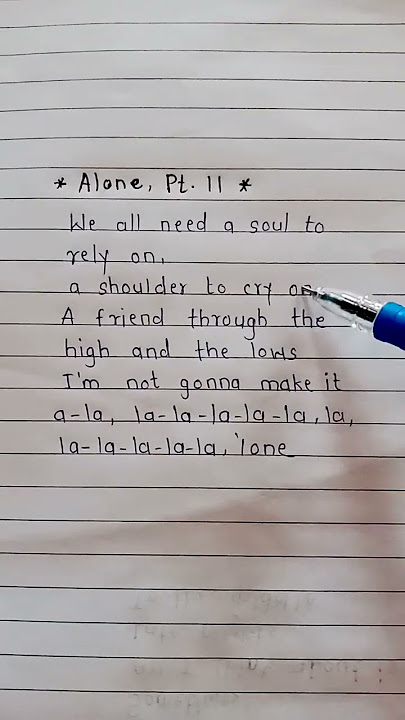 * Alone, Pt. II *
We all need a soul to
rely on,
a shoulder to cry on
A friend through the
high and the lows
I'm not gonna make it
a-la, la-la-la-la-la, la,
la-la-la-la-la, 'lone